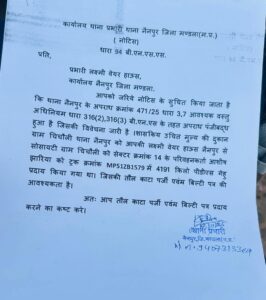 कार्यालय थाना प्रभारी थाना नैनपुर जिला मण्डला(म.प्र.)
( नोटिस )
धारा 94 बी.एन.एस.एस.
प्रति,
प्रभारी लक्ष्मी वेयर हाऊस,
कार्यालय नैनपुर जिला मण्डला.
आपको जरिये नोटिस के सुचित किया जाता है
कि थाना नैनपुर के अपराध क्रमांक 471/25 धारा 3,7 आवश्यक वस्तु
अधिनियम धारा 316(2),318(3) बी.एन.एस के तहत अपराध पंजीबद्ध
हुआ है जिसकी विवेचना जारी है।शासकिय उचित मूल्य की दुकान
ग्राम चिचोंली थाना नैनपुर को आपकी लक्ष्मी वेयर हाऊस नैनपुर से
सोसायटी ग्राम चिचोंली को सेक्टर क्रमांक 14 के परिवहनकर्ता आशोष
झारिया को ट्रक क्रमांक 4191 किलो पीडीएस गेहु
प्रदाय किया गया था। जिसकी तौल काटा पर्ची एवंम बिल्टी पत्र की
आवश्यकता है।
अतः आप तौल काटा पर्ची एवंम बिल्टी पत्र प्रदाय
करने का कष्ट करे।